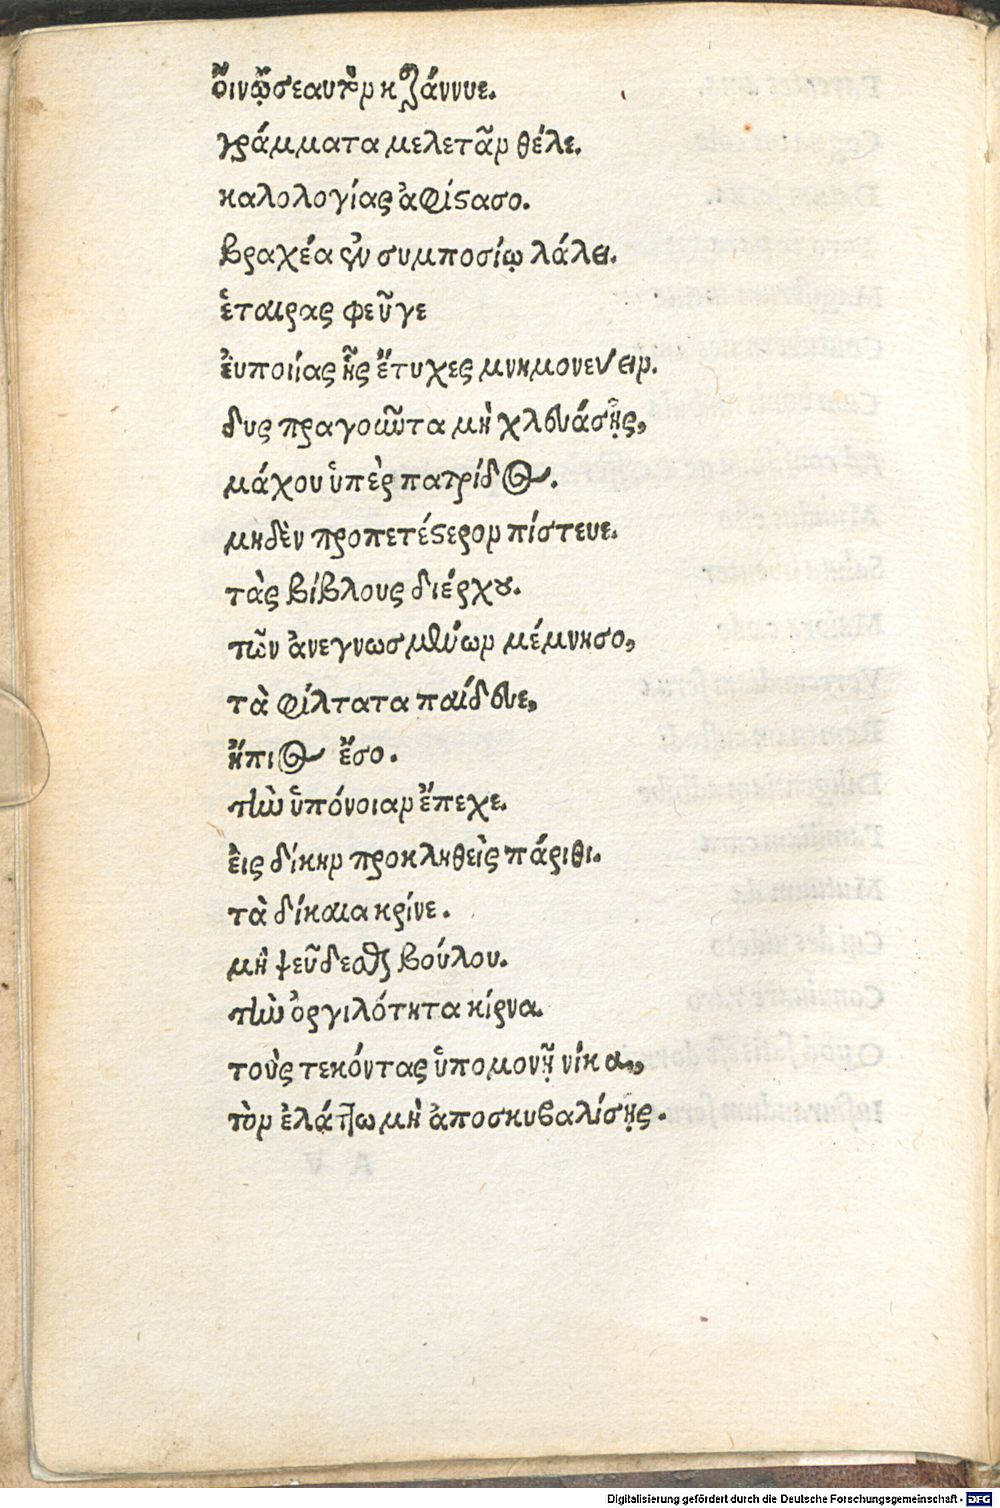 ὄινῳ σεαυτὸν κεράννυε.
γράμματα μελετᾶν θέλε.
καλολογίας ἀφίστασο.
βραχέα ἐν συμποσίῳ λάλει.
ἑταιρας φεῦγε
ἐυποιίας ἧς ἔτυχες μνημονεύειν.
δυσπραγοῦντα μὴ χλευάσῃς,
μάχου ὑπὲρ πατρίδος.
μηδὲν προπετέστερον πίστευε.
τὰς βίβλους διέρχου.
τῶν ἀνεγνωσμένων μέμνησο,
τὰ φίλτατα παίδευε,
ἤπιος ἔσο.
τὴν ὑπόνοιαν ἔπεχε.
ἐις δίκην προκληθεὶς πάριθι.
τὰ δίκαια κρίνε.
μὴ ψεῦδεσθαι βούλου.
τὴν ὀργιλότητα κίρνα.
τοὺς τεκόντας ὑπομονῇ νίκα,
τὸν ἐλάττω μὴ ἀποσκυβαλίσῃς.
Digitalisierung gefördert durch die Deutsche Forschungsgemeinschaft - DFG